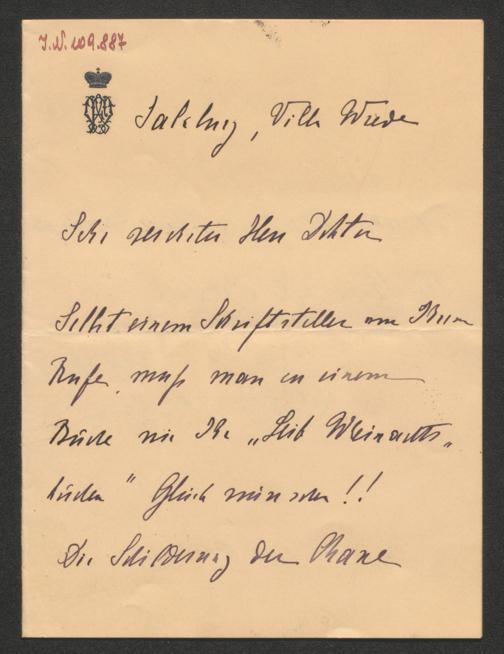 I.N. 109.887
Salzburg, Villa Wrede
Sehr geehrter Herr Doktor
Selbst einem Schriftsteller von Ihrem
Rufe, muß man zu einem
Buche wie Ihr „
" Glück wünschen!!
Die Schilderung der